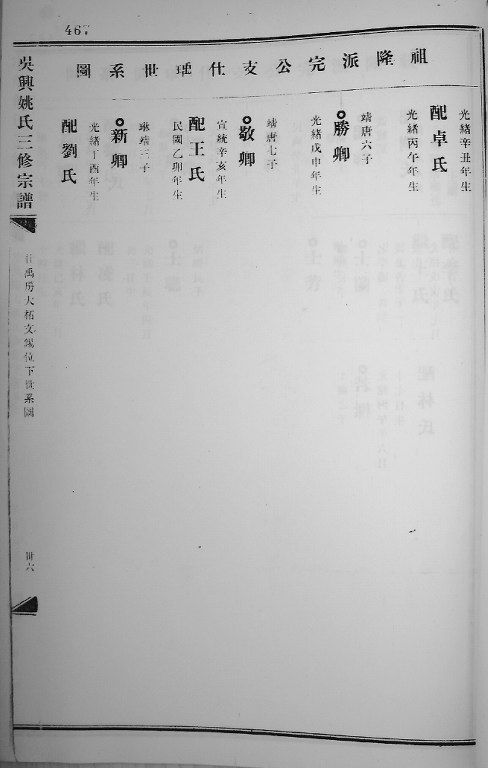 467
祖隆派完公支仕璡世系圖
光緒辛丑年生
配卓氏
光緒丙午年生
靖唐六子
勝卿
光緒戊申年生
靖唐七子
敬卿
宣統辛亥年生
配王氏
民國乙卯年生
琳瑞三子
新卿
光緒丁酉年生
配劉氏
吳興姚氏三修宗譜
禹房大栢文
位下世系圖
卅六